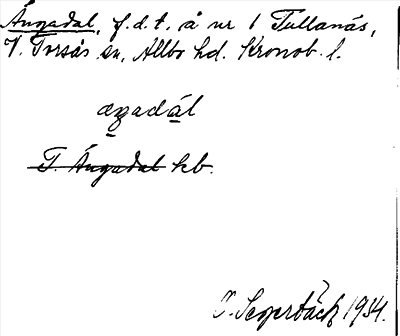 Ängadal, f.d.t. å nr 1 Tullanäs,
V. Torsås sn, Allbo hd. Kronob. l.
aŋadál
T. Ängadal kb.
Segerbäck 1934.